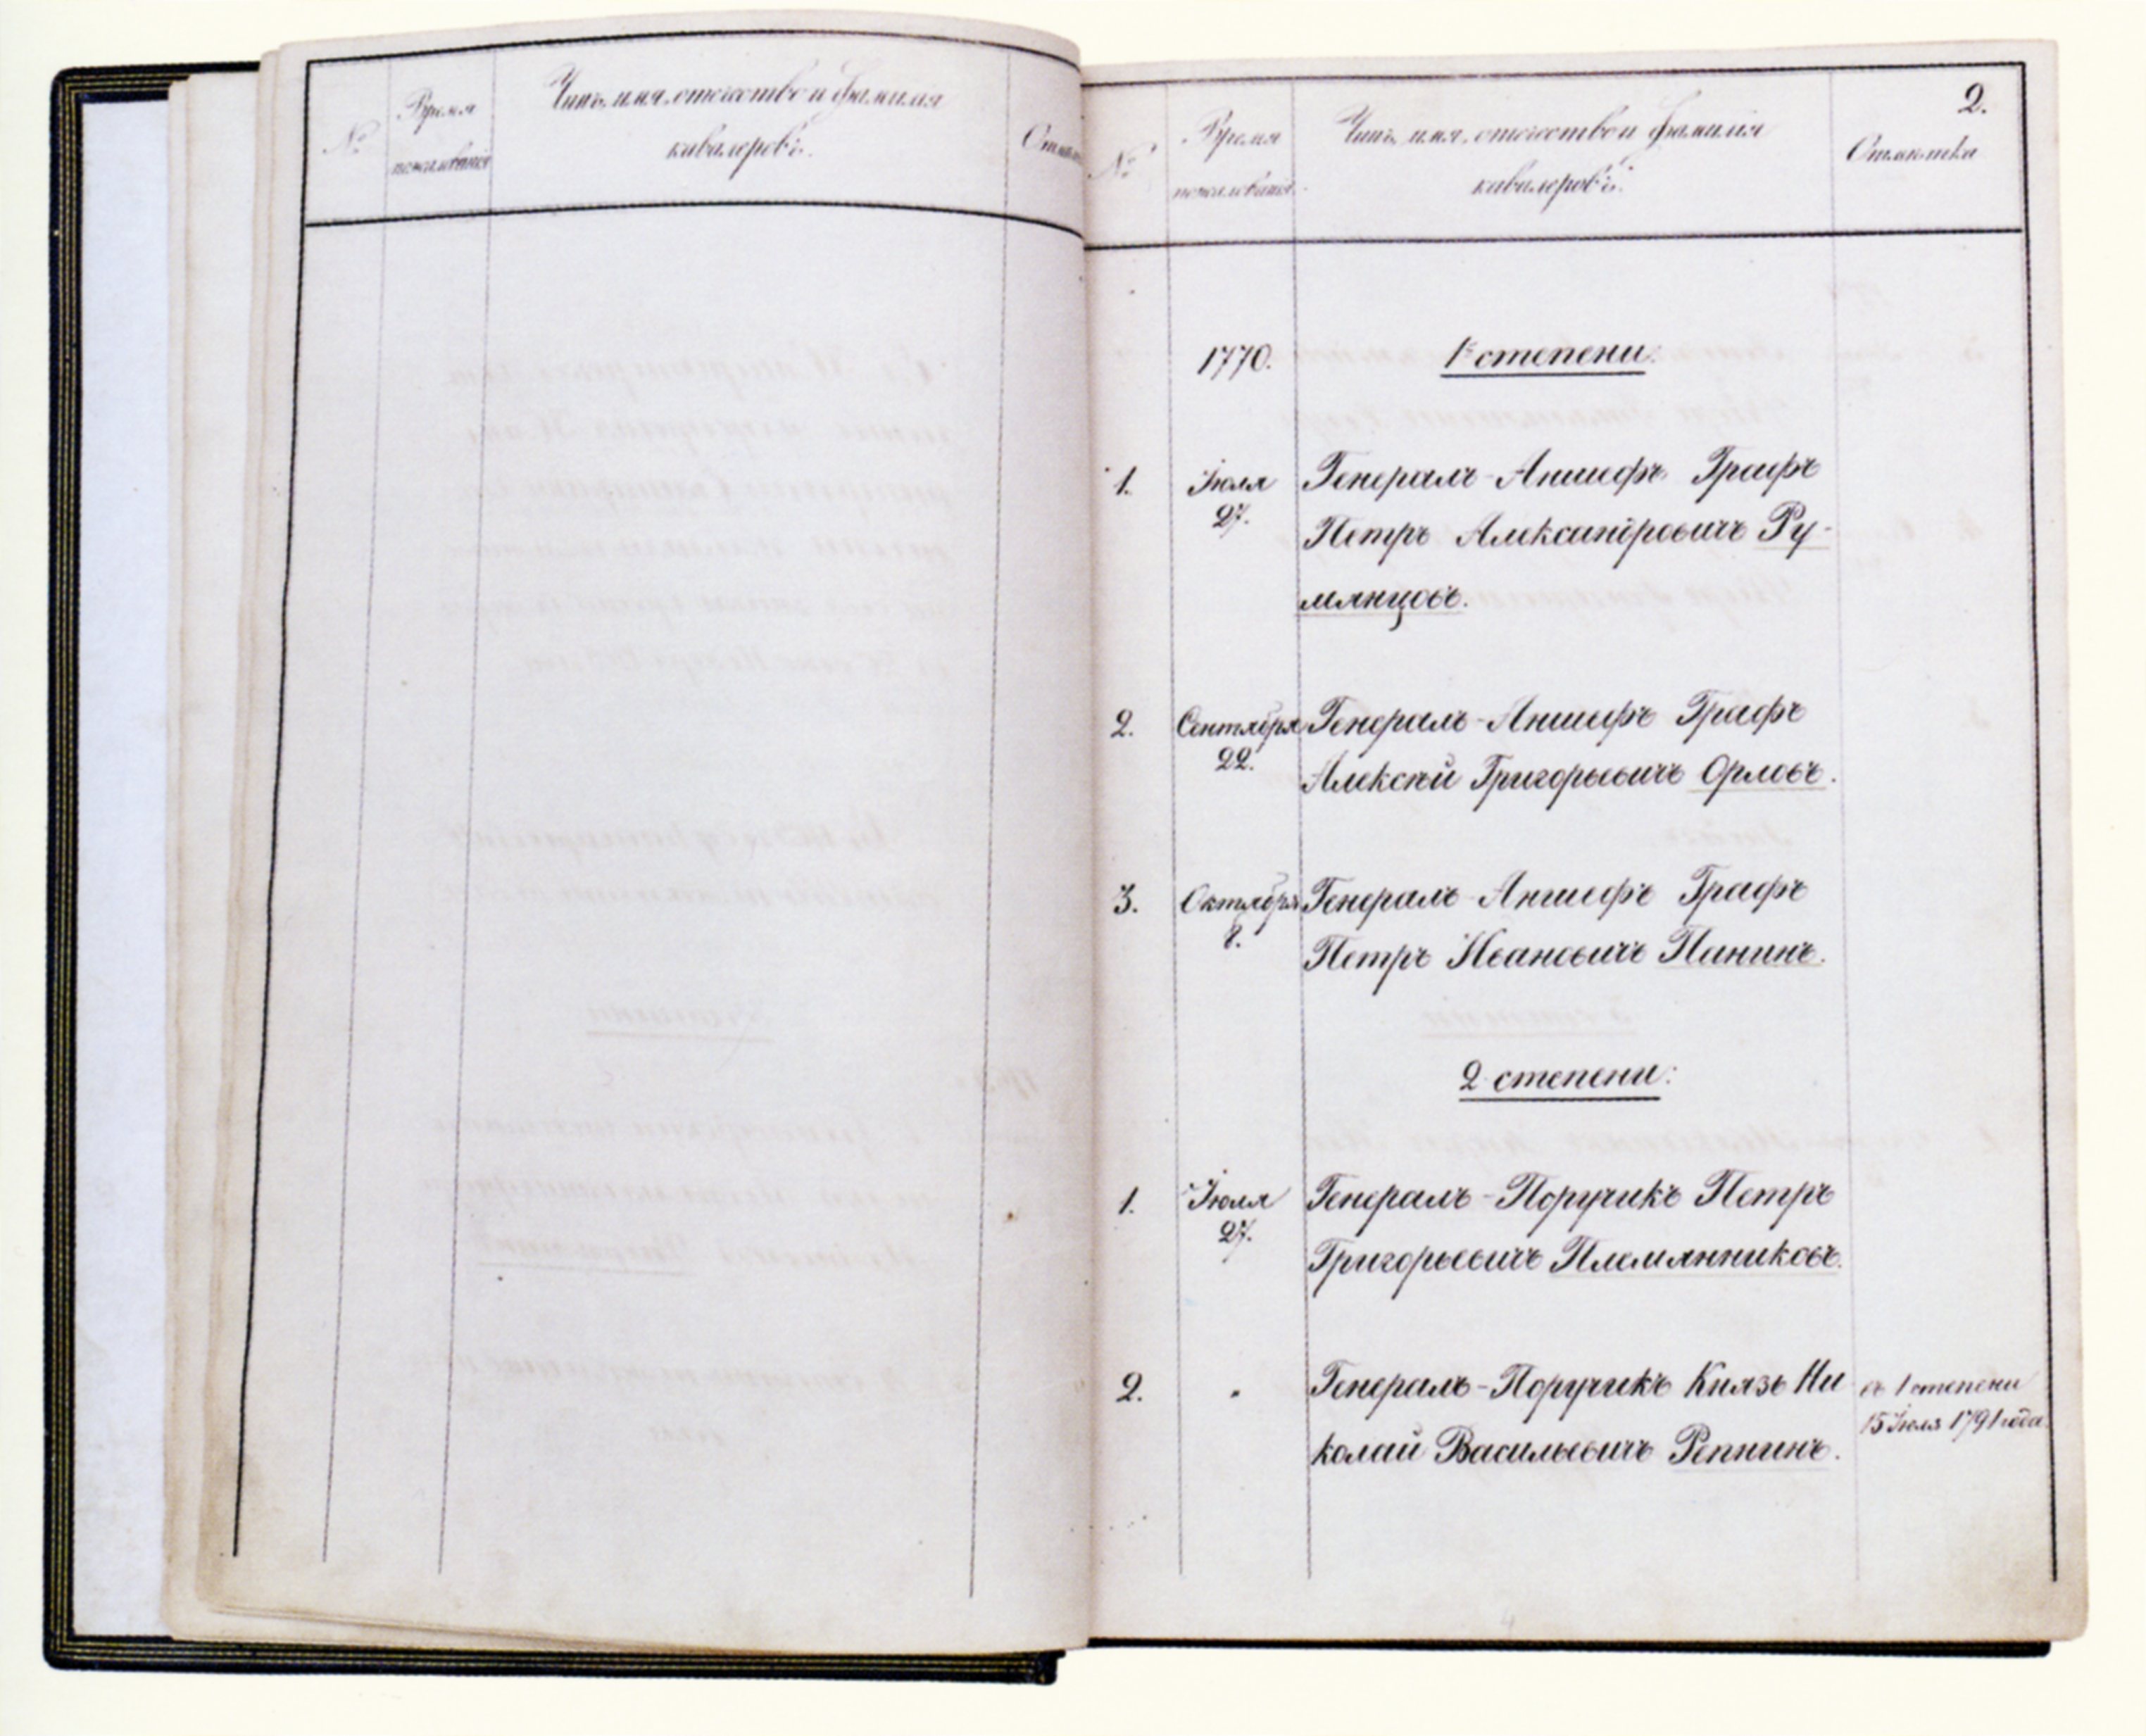 №
Время
пожалованія
Чинъ, имя, отчество и фамилія
кавалеровъ.
2.
№
Время
пожалованія.
Чинъ, имя, отчество и фамилія
кавалеровъ.
Отмѣтка
1770.
1й степени:
1.
Іюля
27.
Генералъ-Аншефъ Графъ
Петръ Александровичъ Ру-
мянцовъ.
2.
Сентября
22.
Генералъ-Аншефъ Графъ
Алексѣй Григорьевичъ Орловъ.
3.
Октября
8.
Генералъ-Аншефъ Графъ
Петръ Ивановичъ Панинъ.
2 степени:
1.
Іюля
27.
Генералъ-Поручикъ Петръ
Григорьевичъ Племянниковъ.
2.
"
Генералъ-Поручикъ Князь Ни
колай Васильевичъ Репнинъ.
съ 1 степени
15 Іюля 1791 года.